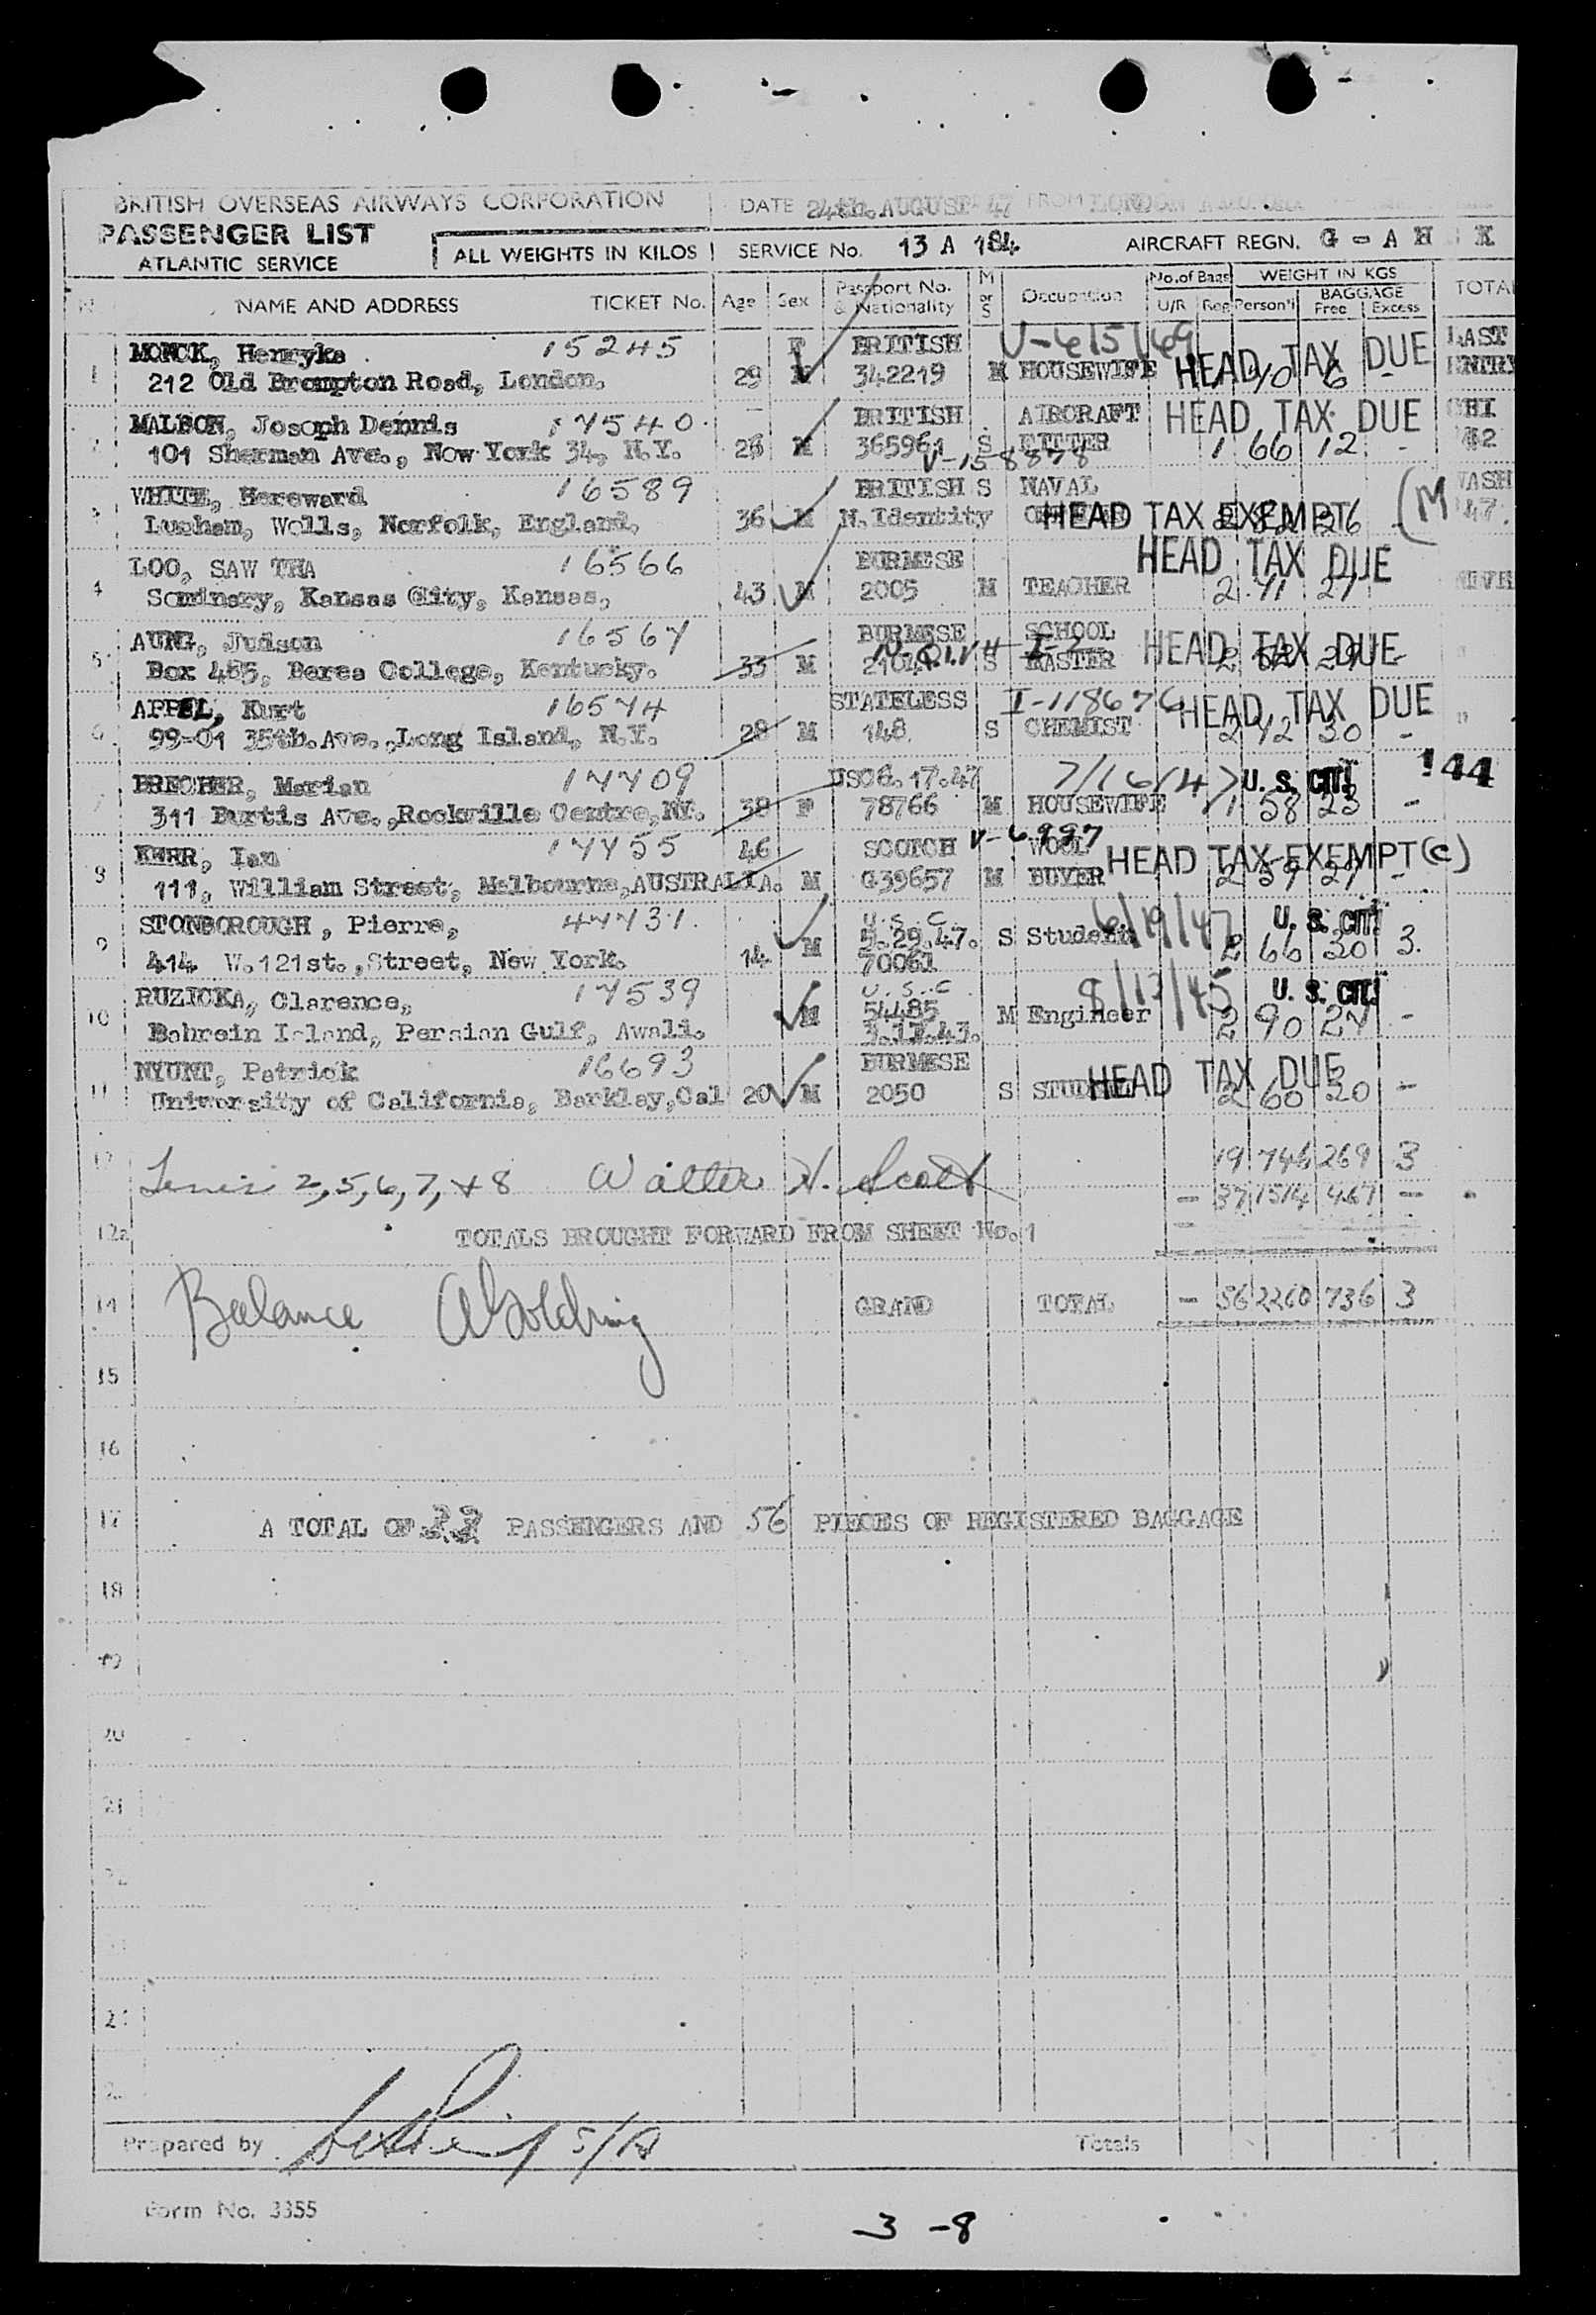 BRITISH OVERSEAS AIRWAYS CORPORATION DATE 24th. AUGUST 47 FROM LONDON
PASSENGER LIST
ATLANTIC SERVICE ALL WEIGHTS IN KILOS SERVICE No. 13 A 184 AIRCRAFT REGN. G - A H K
NAME AND ADDRESS TICKET No. Age Sex Passport No. & Nationality M or S Occupation No. of Bags U/R Reg Person'l WEIGHT IN KGS BAGGAGE Free Excess TOTAL
1 MONCK, Henryka 15245 F BRITISH V-615169 HEAD TAX DUE LAST
212 Old Brompton Road, London. 29 M 342219 M HOUSEWIFE 1 70 6 - ENTRY
2 MALBON, Joseph Dennis 17540 BRITISH AIRCRAFT HEAD TAX DUE
101 Sherman Ave., New York 34, N.Y. 28 M 365961 S FITTER 1 66 12 -
V-158878
3 WHITE, Hereward 16589 BRITISH S NAVAL WASH
Lusham, Wells, Norfolk, England, 36 M N.Identity HEAD TAX EXEMPT 26 (M 47.
4 LOO, SAW THA 16566 BURMESE HEAD TAX DUE
Seminary, Kansas City, Kansas, 43 M 2005 M TEACHER 2 71 27
5 AUNG, Judson 16567 BURMESE SCHOOL HEAD TAX DUE
Box 485, Berea College, Kentucky. 33 M S MASTER 2 29 -
6 APPEL, Kurt 16574 STATELESS I-118676 HEAD TAX DUE
99-01 35th. Ave., Long Island, N.Y. 28 M 148 S CHEMIST 2 72 30 -
7 BRECHER, Marian 17709 USC 6.17.47 7/16/47 U. S. CIT. 144
311 Burtis Ave., Rockville Centre, NY. 38 F 78766 M HOUSEWIFE 1 58 23 -
8 KERR, Ian 17755 46 SCOTCH V-6997 WOOL HEAD TAX EXEMPT (C)
111, William Street, Melbourne, AUSTRALIA. M G39657 M BUYER 2 57 27 -
9 STONBOROUGH, Pierre, 47731. U.S.C. 6/19/47 U. S. CIT.
414 W.121st., Street, New York. 14 M 5.29.47. 70061 S Student 2 66 20 3.
10 RUZICKA, Clarence, 17539 U.S.C 8/13/45 U. S. CIT.
Bahrein Island, Persian Gulf, Awali. M 54485 3.17.43. M Engineer 2 90 27 -
11 NYUNT, Patrick 16693 BURMESE HEAD TAX DUE
University of California, Barkley, Cal 20 M 2050 S STUDENT 2 60 20 -
12 19 746 269 3
2, 5, 6, 7, + 8 Walter H. Scott - 37 1514 467 -
12a TOTALS BROUGHT FORWARD FROM SHEET No. 1
14 Balance A Golding GRAND TOTAL - 56 2260 736 3
15
16
17 A TOTAL OF 33 PASSENGERS AND 56 PIECES OF REGISTERED BAGGAGE
18
19
20
21
Prepared by S/A Totals
Form No. 3355
3 - 8